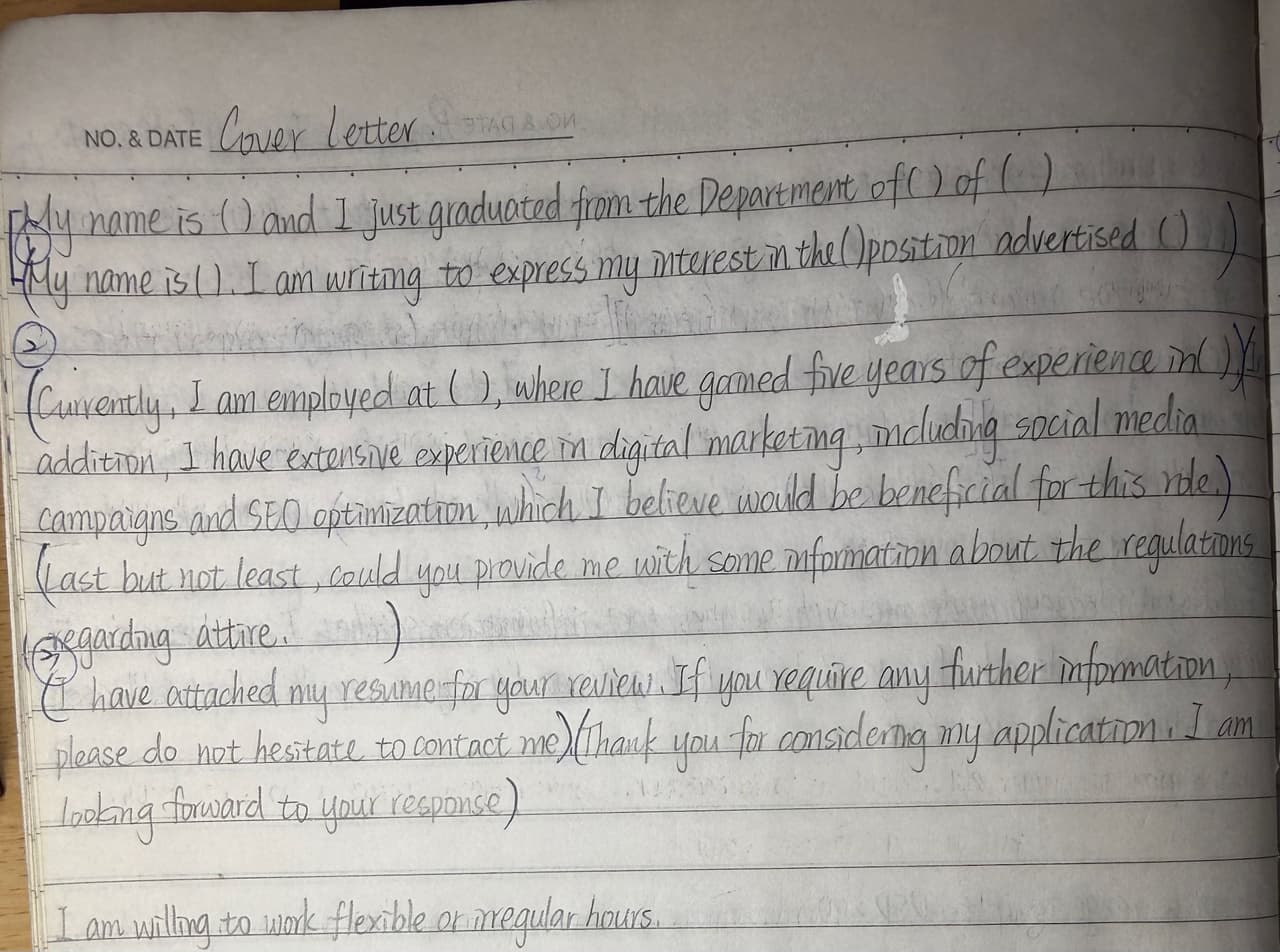 NO. & DATE Cover letter.
My name is ( ) and I just graduated from the Department of ( ) of ( )
①
(My name is ( ). I am writing to express my interest in the ( ) position advertised ( ) )
②
(Currently, I am employed at ( ), where I have gained five years of experience in ( ))(I
addition, I have extensive experience in digital marketing, including social media
campaigns and SEO optimization, which I believe would be beneficial for this role.)
(Last but not least, could you provide me with some information about the regulations
regarding attire. )
③
(I have attached my resume for your review. If you require any further information,
please do not hesitate to contact me)(Thank you for considering my application. I am
looking forward to your response)
I am willing to work flexible or irregular hours.